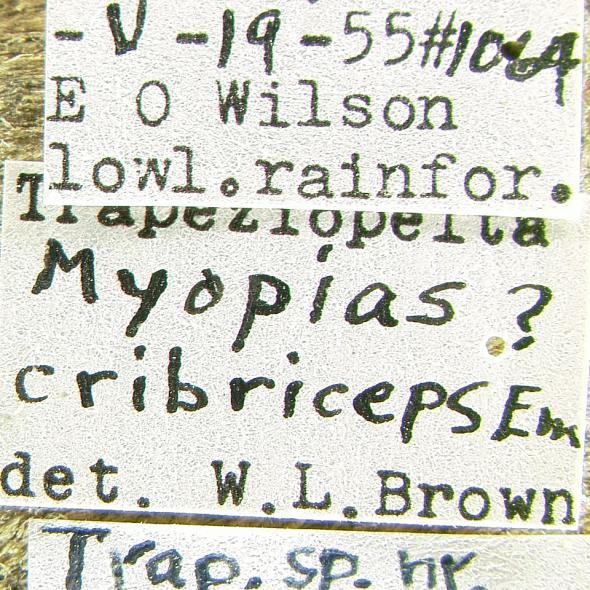 -V-19-55#
E O Wilson
lowl.rainfor.
Trapeziopelta
Myopias ?
cribriceps Em
det. W.L.Brown
Trap. sp. nr.